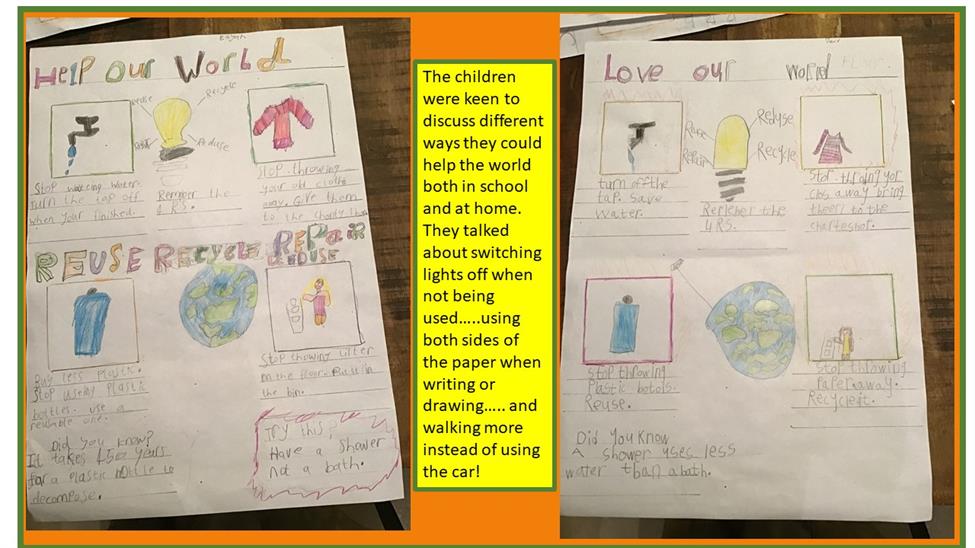 HELP OUR WORLD
Reuse
Recycle
Reduse
Stop wasting water.
Turn the tap off
when your finished.
Remember the
4 RS.
Stop throwing
your old cloths
away. Give them
to the charity
REUSE RECYCLE REPAIR
REDUSE
Buy less plastic.
Stop useing plastic
bottles. use a
reusable one.
Stop thowing litter
on the floor. Put it in
the bin.
Did you know?
It takes 450 years
for a plastic bottle to
decompose.
Try this?
Have a shower
not a bath.
The children
were keen to
discuss different
ways they could
help the world
both in school
and at home.
They talked
about switching
lights off when
not being
used.....using
both sides of
the paper when
writing or
drawing..... and
walking more
instead of using
the car!
LOVE OUR World
Reuse
Reduse
Repair
Recycle
turn off the
tap. save
water.
the
4 RS.
away bring
them to the
Stop throwing
Plastic botols.
Reuse.
Stop throwing
Paper away.
Did You Know
A shower uses less
water than a bath.